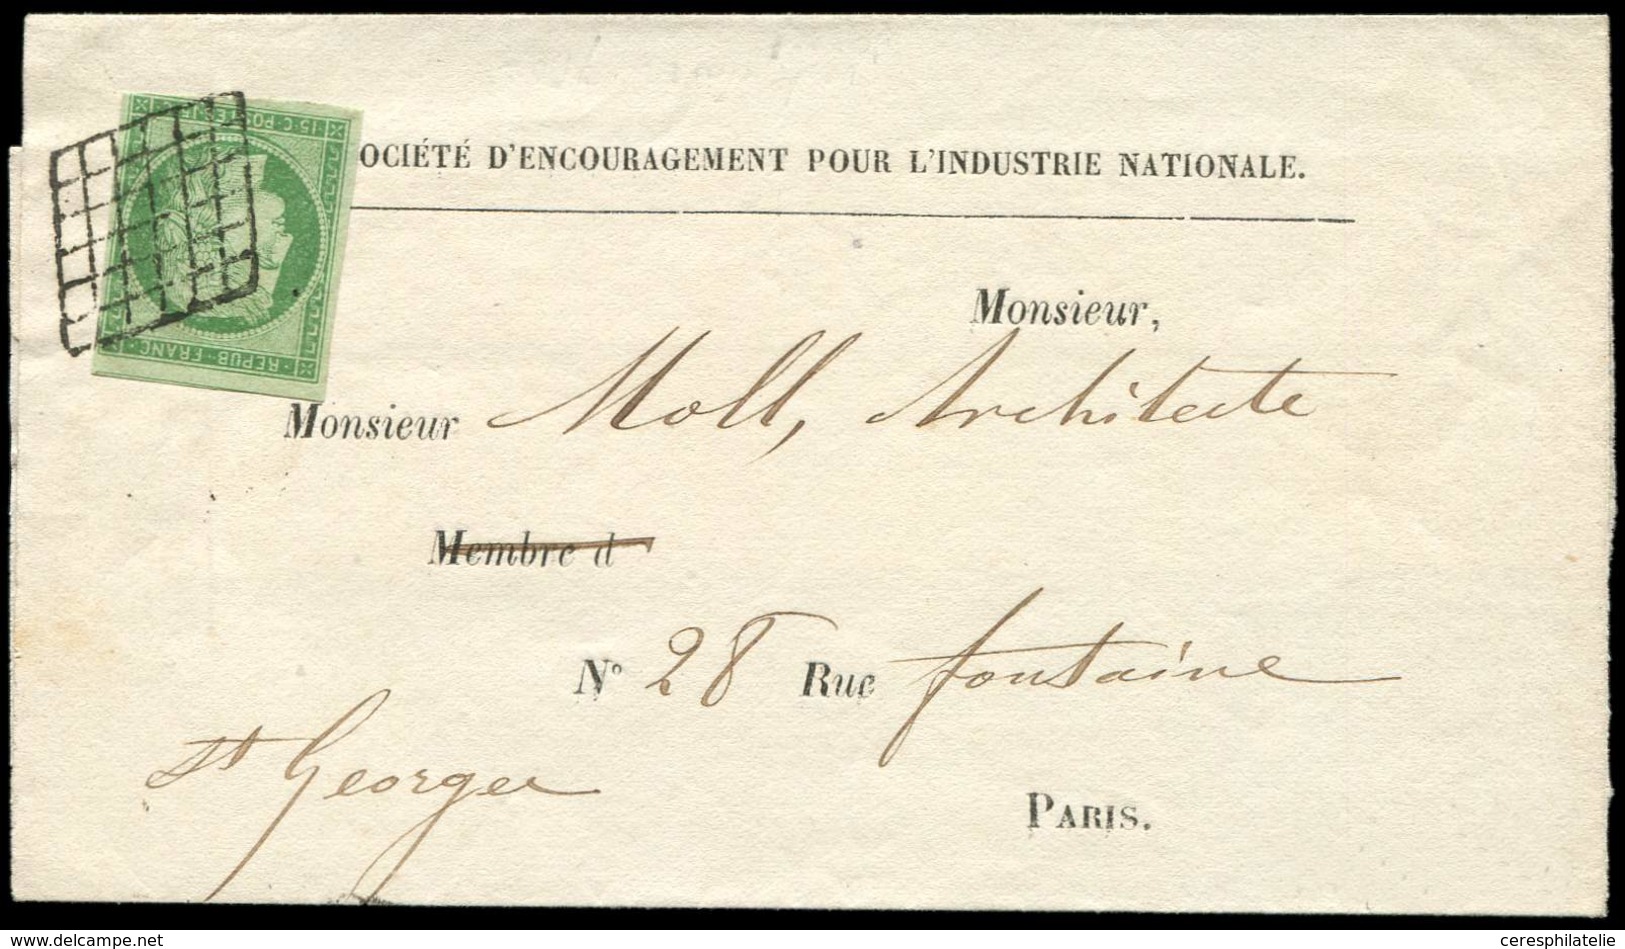 15·C·POSTES·15
REPUB·FRANC·
OCIÉTÉ D'ENCOURAGEMENT POUR L'INDUSTRIE NATIONALE.
Monsieur,
Monsieur Moll, Architecte
Membre d
N° 28 Rue fontaine
St Georges
PARIS.
www.delcampe.net
ceresphilatelie